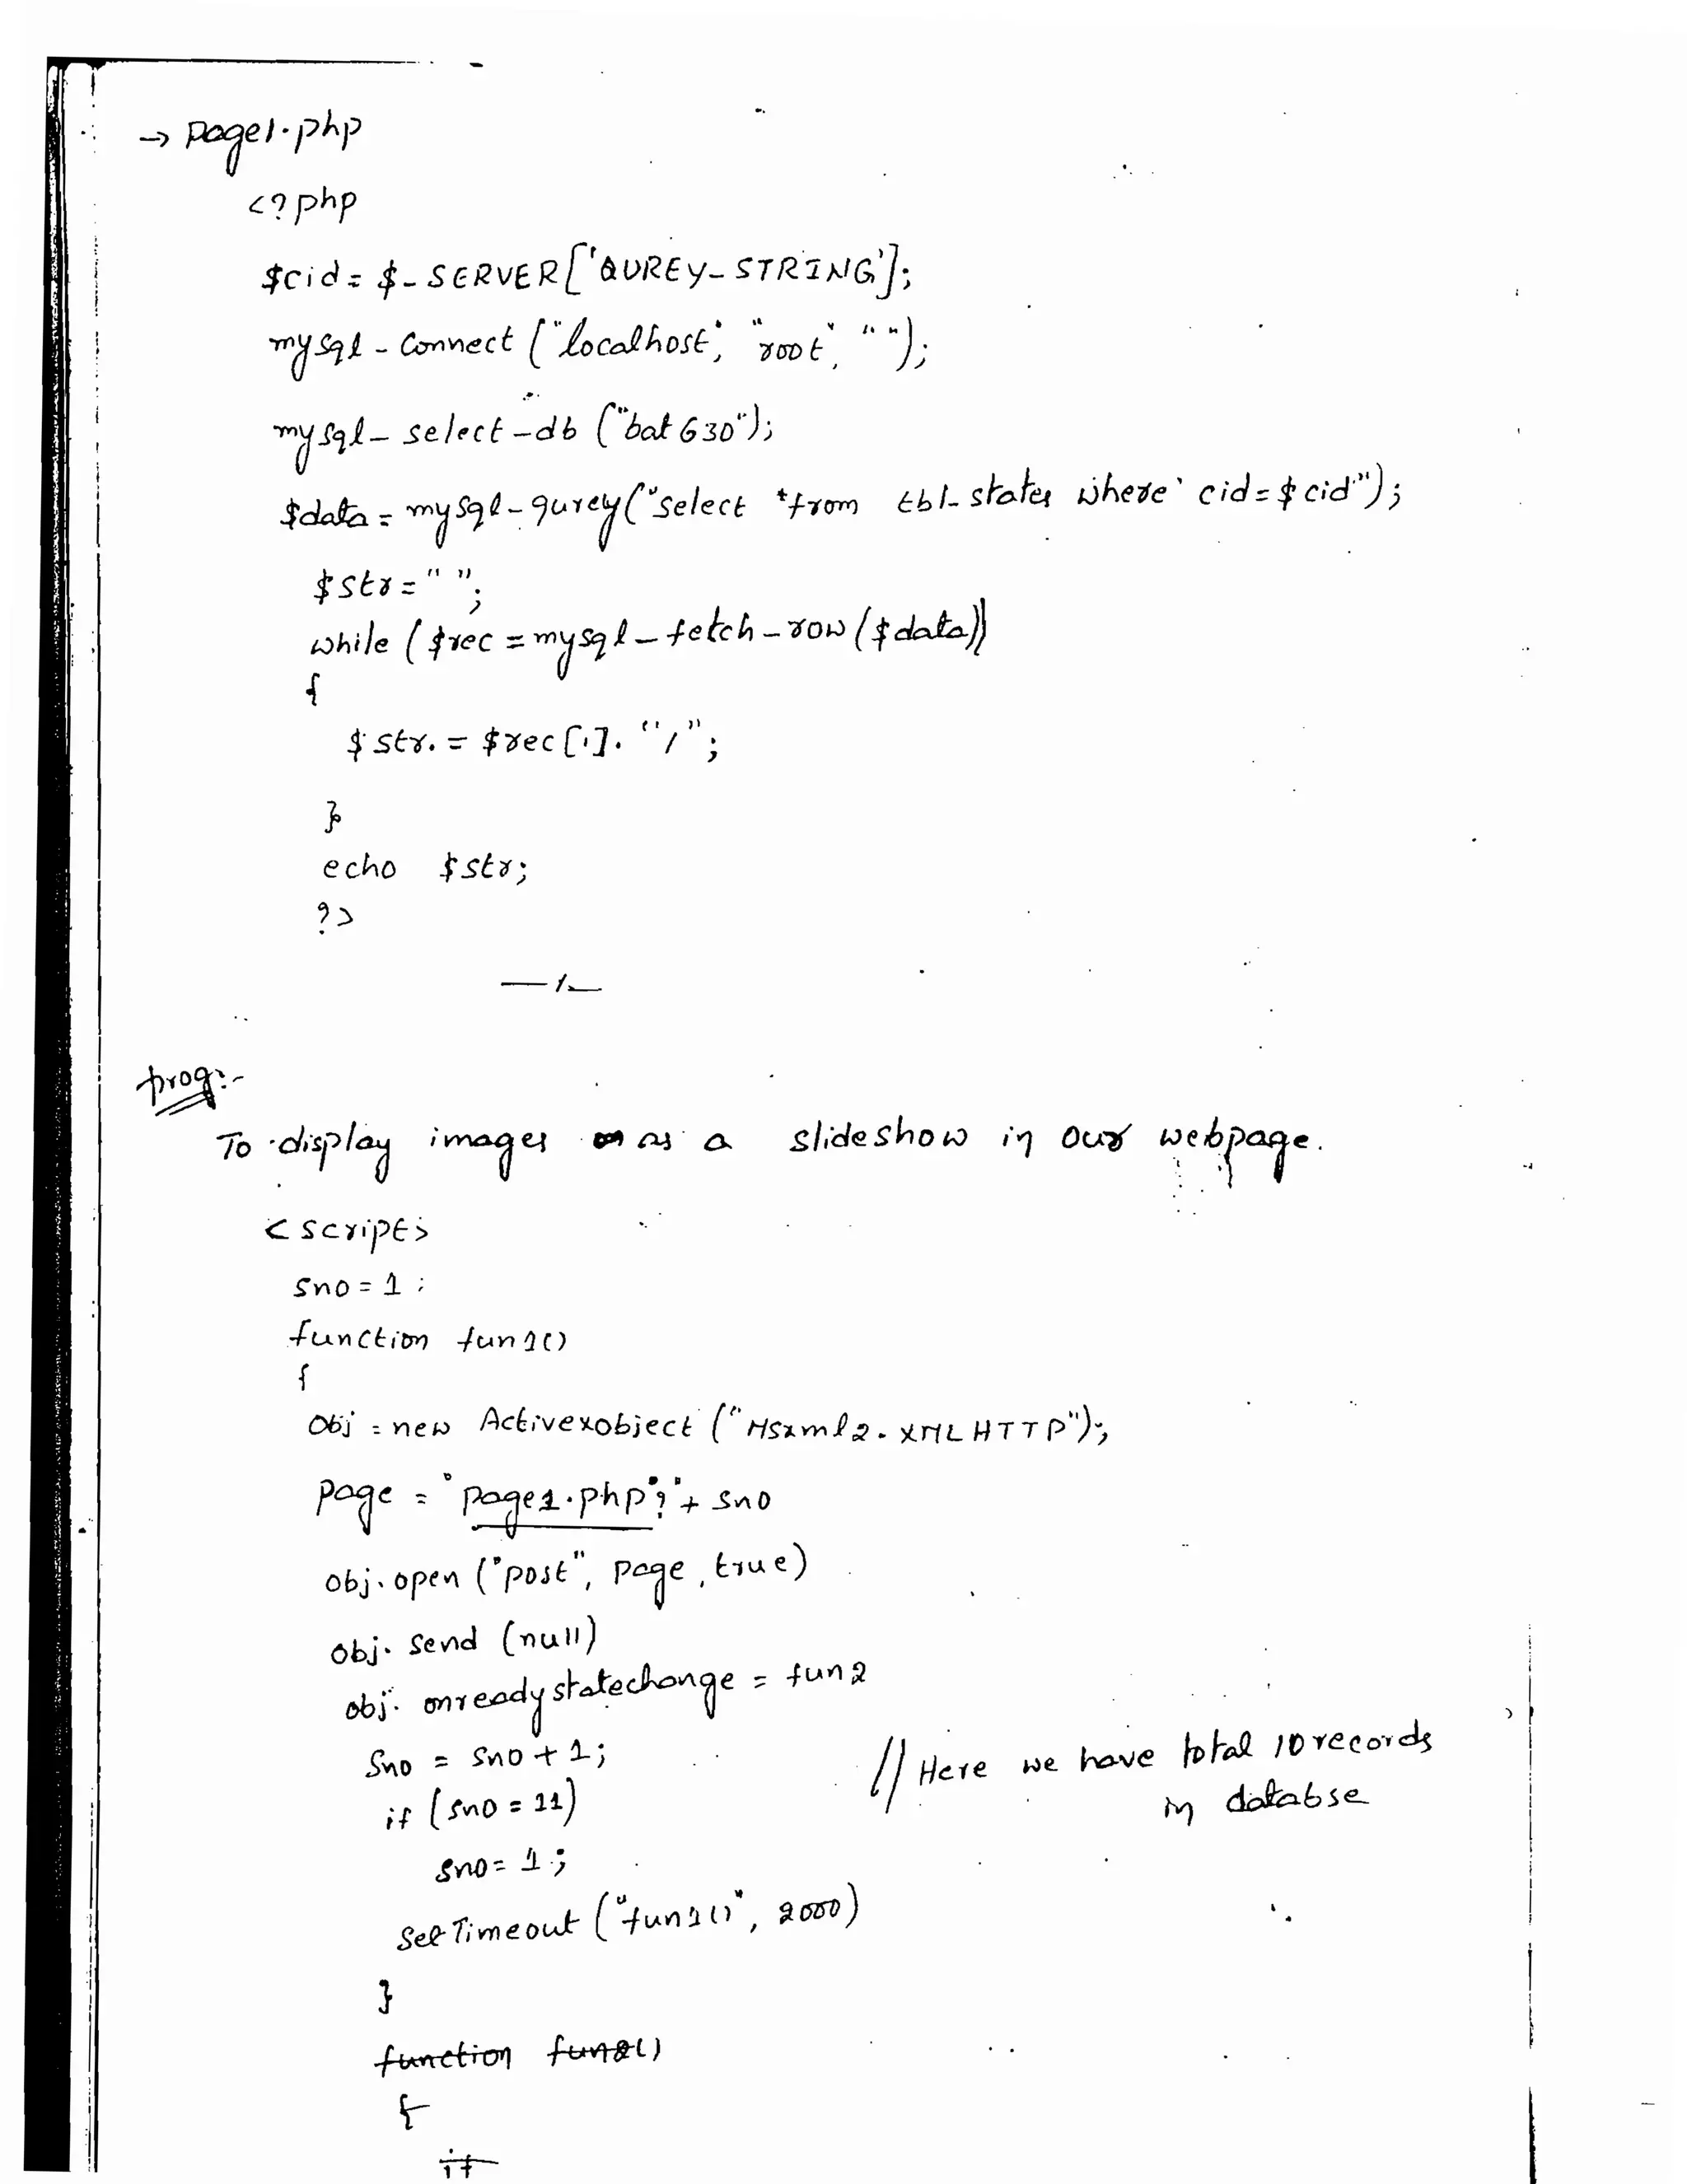 → Page1.php
<?php
$cid = $_SERVER['QUREY_STRING'];
mysql_connect ("localhost", "root", " ");
mysql_select_db ("bat630");
$data = mysql_qurey("select *from tbl_states where cid=$cid");
$str=" ";
while ($rec = mysql_fetch_row($data))
{
$str. = $rec[1]. "/";
}
echo $str;
?>
prog:-
To display images as a slideshow in our webpage.
<script>
sno = 1 ;
function fun1()
{
obj = new Activexobject ("Msxml2.XMLHTTP");
page = "page1.php?"+ sno
obj.open ("post", page, true)
obj. send (null)
obj. onreadystatechange = fun2
sno = sno + 1;
if (sno = 11) // Here we have total 10 records
in databse
sno = 1;
SetTimeout ("fun1()", 2000)
}
function fun2()
{
if